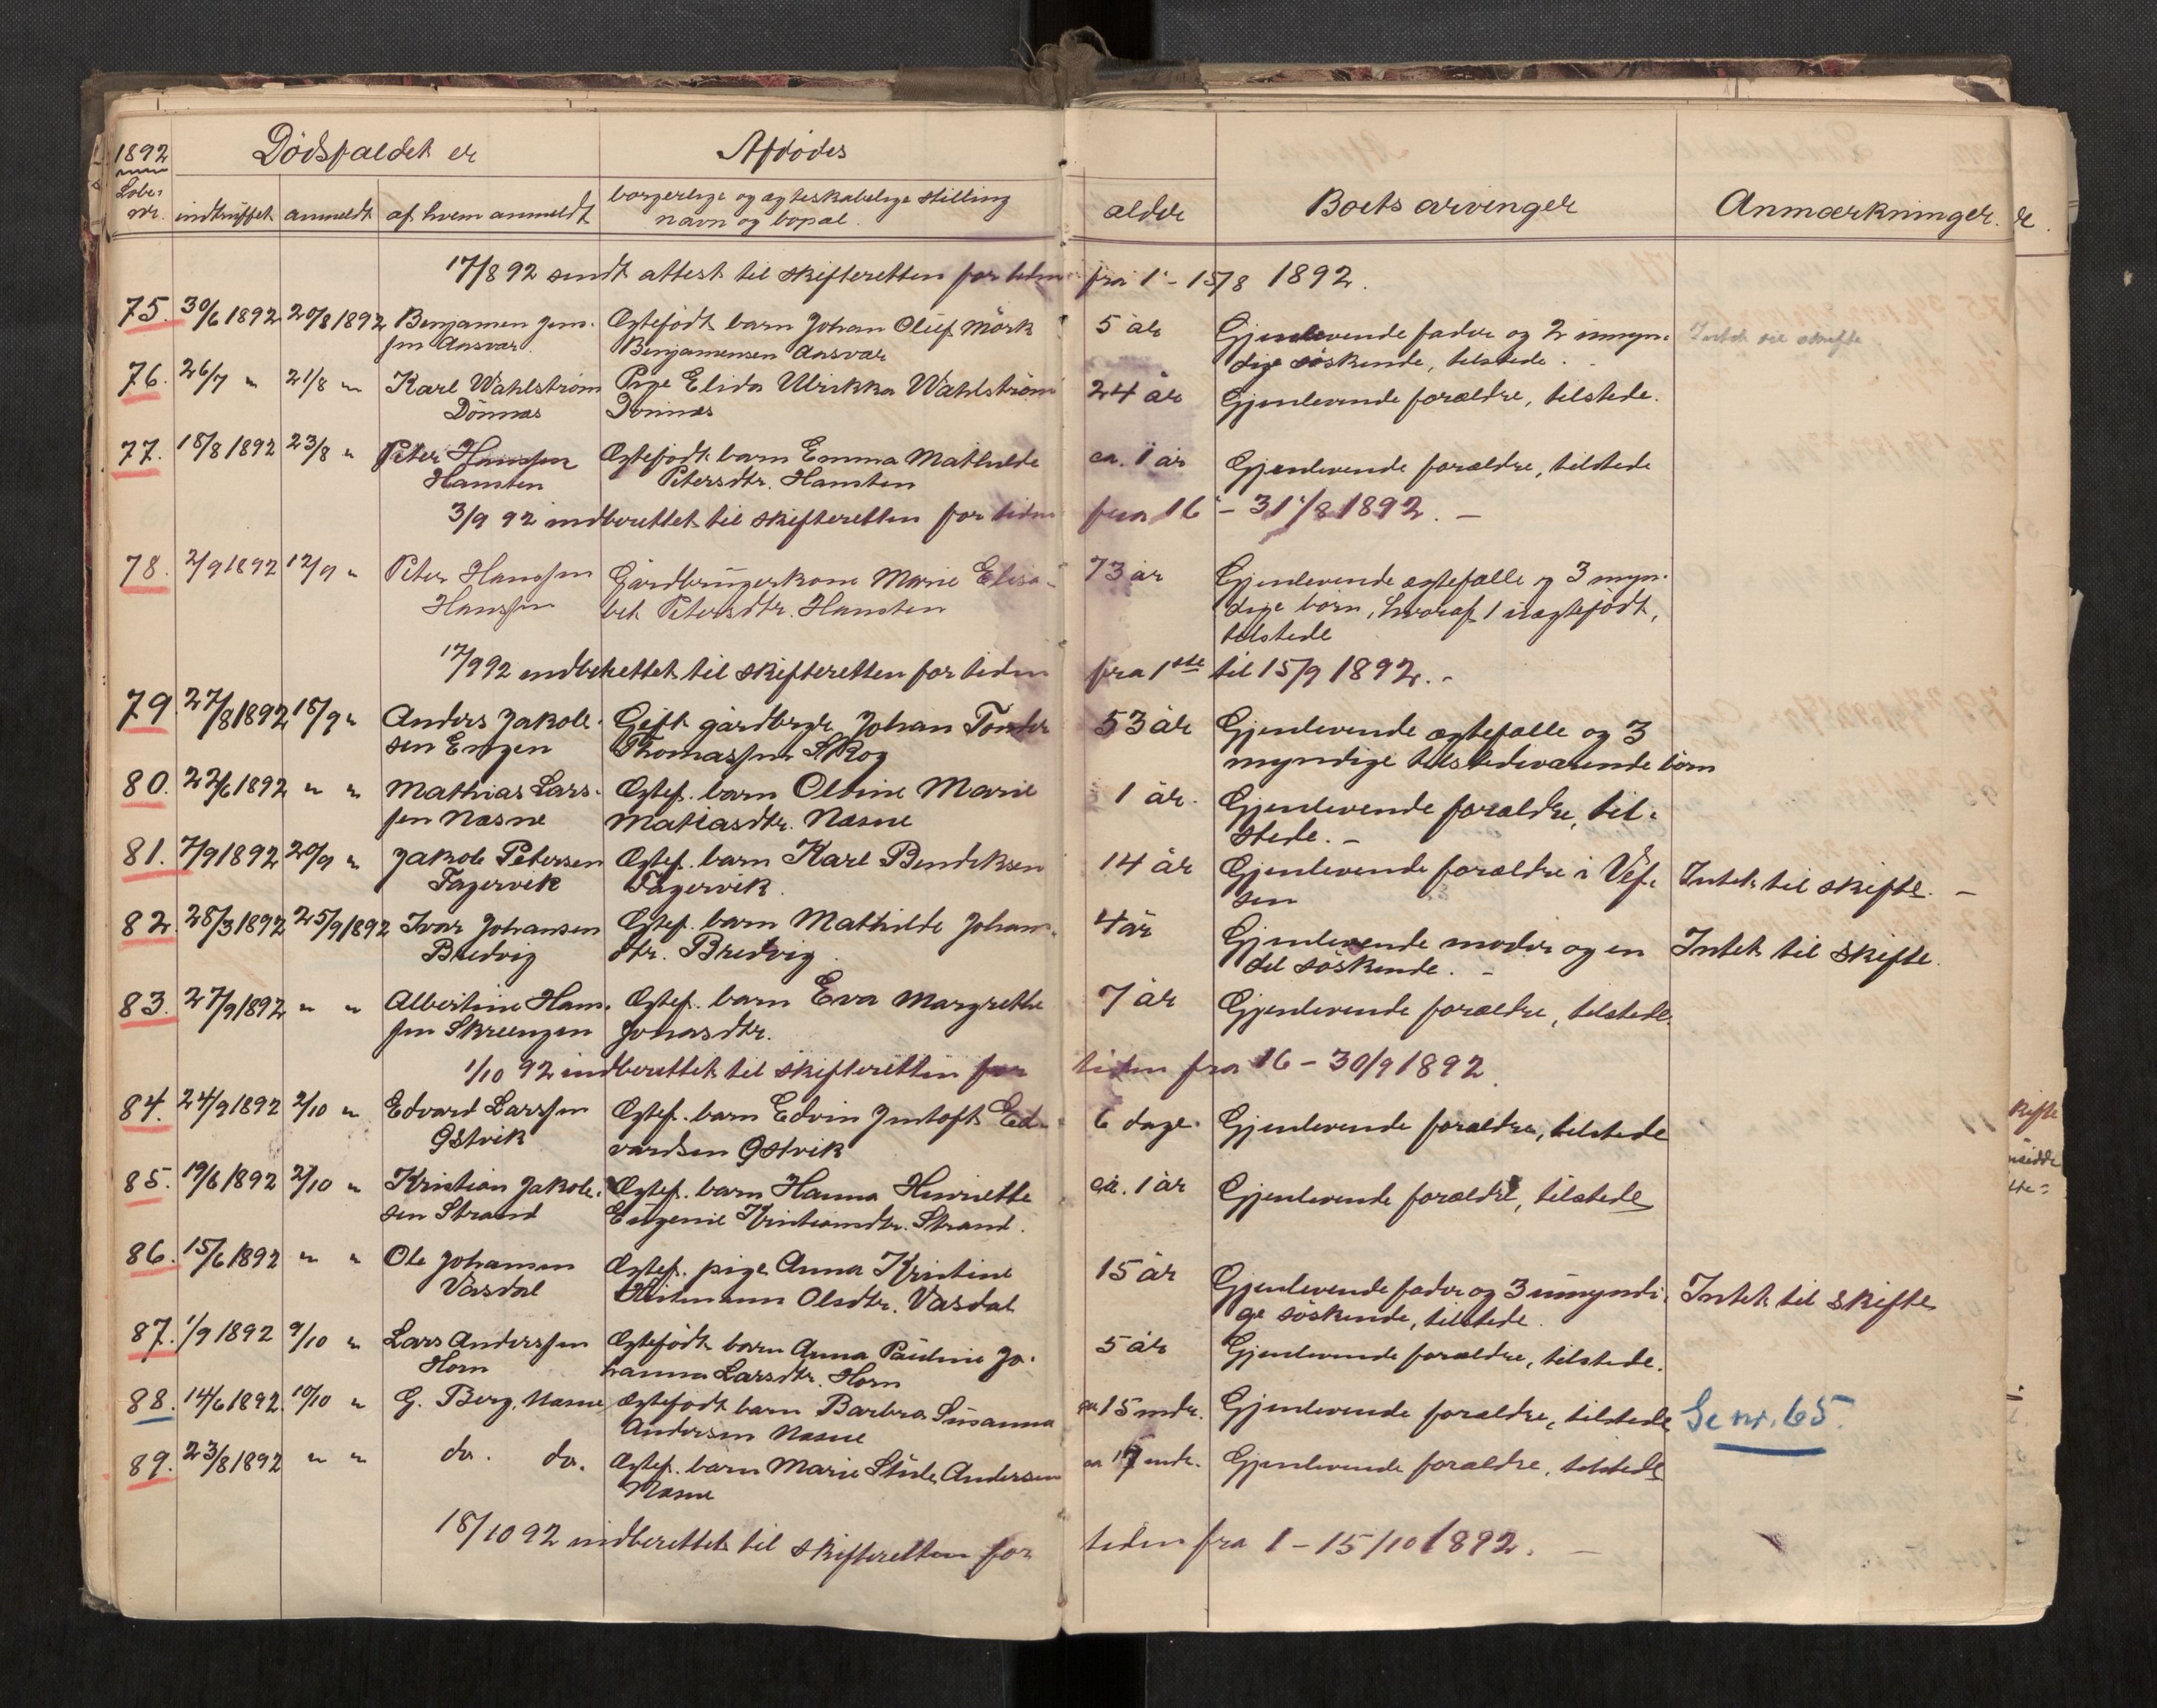 1892 Dödsfaldet er Afdödes
Löbe-
nr. indtruffet anmeldt af hvem anmeldt borgerlige og ægteskabelige stilling
navn og bopæl. alder Boets arvinger Anmærkninger.
17/8 92 sendt attest til skifteretten for tiden fra 1 - 15/8 1892.
75. 30/6 1892 20/8 1892 Benjamen Jen- Ægtefödt barn Johan Oluf Mörk 5 år Gjenlevende fader og 2 umyn- Intet til skifte
sen Aasvær Benjamensen Aasvær dige söskende, tilstede.
76. 26/7 " 21/8 " Karl Wahlström Pige Elida Ulrikka Wahlström 24 år Gjenlevende forældre, tilstede.
Dönnæs Dönnæs
77. 18/8 1892 23/8 " Peter Hanssen Ægtefödt barn Emma Mathilde ca. 1 år Gjenlevende forældre, tilstede
Hansten Petersdtr. Hansten
3/9 92 indberettet til skifteretten for tiden fra 16 - 31/8 1892. -
78. 2/9 1892 12/9 " Peter Hanssen Gårdbrugerkone Marie Elisa- 73 år Gjenlevende ægtefælle og 3 myn-
Hanssen bet Petersdtr. Hansten dige börn, hvoraf 1 uægtefödt,
tilstede
17/9 92 indberettet til skifteretten for tiden fra 1ste til 15/9 1892. -
79. 27/8 1892 18/9 " Anders Jakob- Gift gårdbrgr. Johan Tönder 53 år Gjenlevende ægtefælle og 3
sen Engen Thomassen Skog myndige tilstedeværende börn
80. 22/6 1892 " " Mathias Lars- Ægtef. barn Oldine Marie 1 år. Gjenlevende forældre, til-
sen Næsne Matiasdtr. Næsne stede. -
81. 7/9 1892 20/9 " Jakob Petersen Ægtef. barn Karl Bendiksen 14 år Gjenlevende forældre i Vef- Intet til skifte. -
Fagervik Fagervik. sen
82. 28/3 1892 25/9 1892 Ivar Johansen Ægtef. barn Mathilde Johans- 4 år Gjenlevende moder og en Intet til skifte.
Bredvig dtr. Bredvig. del söskende. -
83. 27/9 1892 " " Albertine Han- Ægtef. barn Eva Margrethe 7 år Gjenlevende forældre, tilstede.
sen Jonasdtr.
1/10 92 indberettet til skifteretten for tiden fra 16 - 30/9 1892.
84. 24/9 1892 2/10 " Edvard Larssen Ægtef. barn Edvin Jentoft Ed- 6 dage. Gjenlevende forældre, tilstede
Østvik vardsen Østvik
85. 19/6 1892 2/10 " Kristian Jakob- Ægtef. barn Hanna Henriette ca. 1 år Gjenlevende forældre, tilstede
sen Strand Eugenie Kristiansdtr. Strand.
86. 15/6 1892 " " Ole Johansen Ægtef. pige Anna Kristine 15 år Gjenlevende fader og 3 umyndi- Intet til skifte
Vasdal Olsdtr. Vasdal ge söskende, tilstede.
87. 1/9 1892 9/10 " Lars Anderssen Ægtefödt barn Anna Pauline Jo- 5 år Gjenlevende forældre, tilstede.
Horn hanna Larsdtr. Horn
88. 14/6 1892 10/10 " G. Berg, Næsne Ægtefödt barn Barbra Susanna ca 15 mdr. Gjenlevende forældre, tilstede Se nr. 65.
Andersen Næsne
89. 23/8 1892 " " do. do. Ægtef. barn Marie Andersen ca 17 mdr. Gjenlevende forældre, tilstede
Næsne
18/10 92 indberettet til skifteretten for tiden fra 1 - 15/10 1892. -